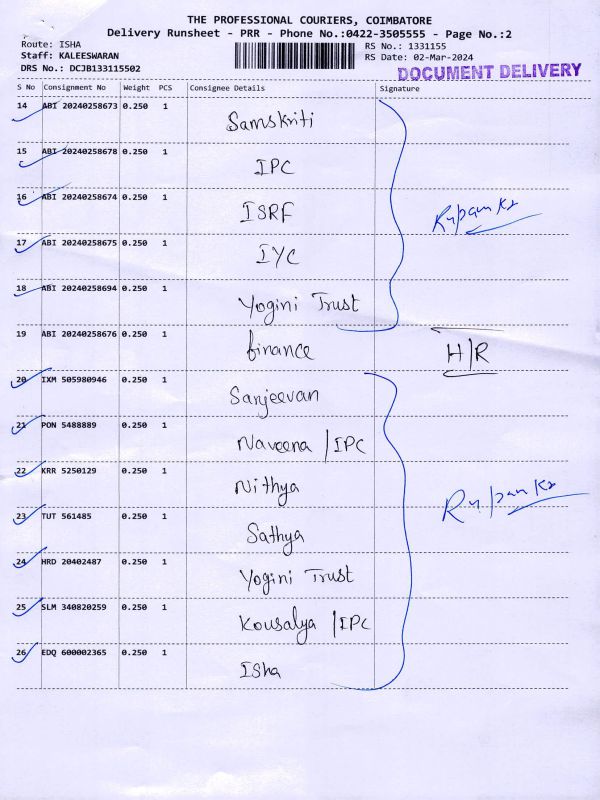 THE PROFESSIONAL COURIERS, COIMBATORE
Delivery Runsheet - PRR - Phone No.:0422-3505555 - Page No.:2
Route: ISHA
Staff: KALEESWARAN
DRS No.: DCJB133115502
RS No.: 1331155
RS Date: 02-Mar-2024
DOCUMENT DELIVERY
S No Consignment No Weight PCS Consignee Details Signature
14 ABI 20240258673 0.250 1 Samskriti
15 ABI 20240258678 0.250 1 IPC
16 ABI 20240258674 0.250 1 ISRF Rupankr
17 ABI 20240258675 0.250 1 IYC
18 ABI 20240258694 0.250 1 Yogini Trust
19 ABI 20240258676 0.250 1 finance H/R
20 IXM 505980946 0.250 1 Sanjeevan
21 PON 5488889 0.250 1 Naveena /IPC
22 KRR 5250129 0.250 1 Nithya Rupankr
23 TUT 561485 0.250 1 Sathya
24 HRD 20402487 0.250 1 Yogini Trust
25 SLM 340820259 0.250 1 Kousalya /IPC
26 EDQ 600002365 0.250 1 ISha